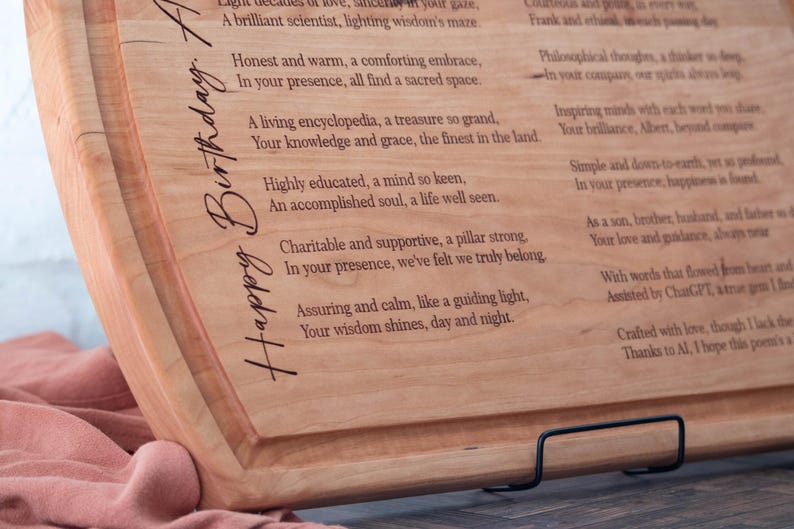 Happy Birthday, A
Eight decades of love, sincerity in your gaze,
A brilliant scientist, lighting wisdom's maze.
Honest and warm, a comforting embrace,
In your presence, all find a sacred space.
A living encyclopedia, a treasure so grand,
Your knowledge and grace, the finest in the land.
Highly educated, a mind so keen,
An accomplished soul, a life well seen.
Charitable and supportive, a pillar strong,
In your presence, we've felt we truly belong.
Assuring and calm, like a guiding light,
Your wisdom shines, day and night.
Courteous and polite, in every way,
Frank and ethical, in each passing day.
Philosophical thoughts, a thinker so deep,
In your company, our spirits always leap.
Inspiring minds with each word you share,
Your brilliance, Albert, beyond compare.
Simple and down-to-earth, yet so profound,
In your presence, happiness is found.
As a son, brother, husband, and father so d
Your love and guidance, always near
With words that flowed from heart and
Assisted by ChatGPT, a true gem I find
Crafted with love, though I lack the
Thanks to AI, I hope this poem's a